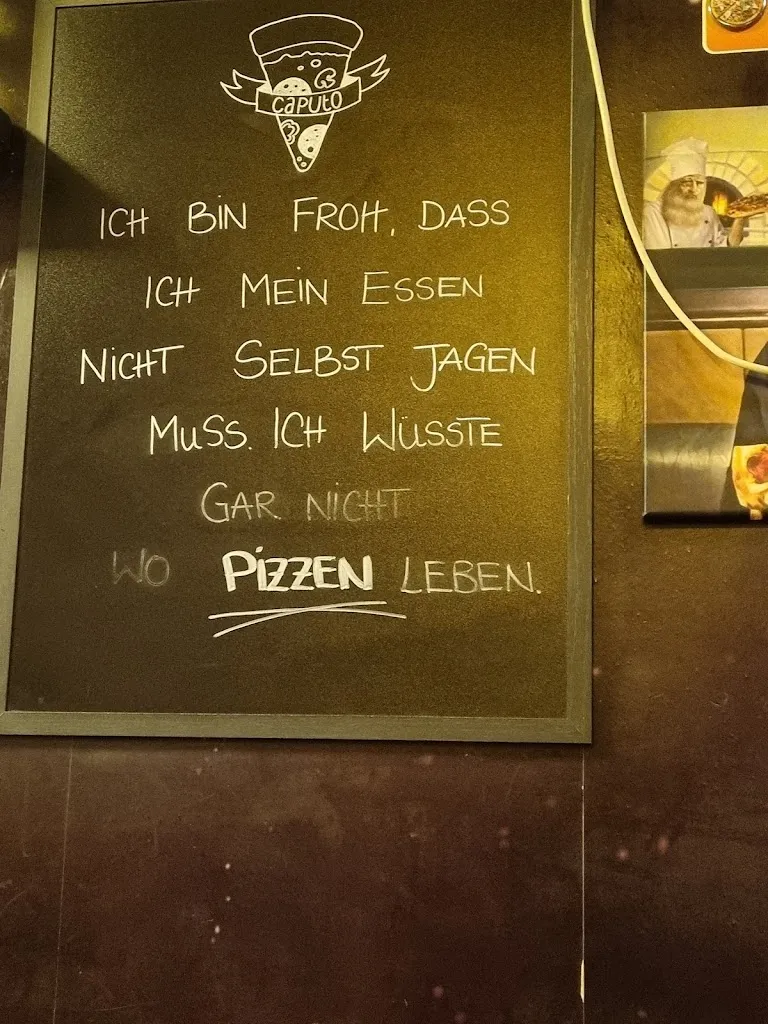 caputo
ICH BIN FROH, DASS
ICH MEIN ESSEN
NICHT SELBST JAGEN
MUSS. ICH WÜSSTE
GAR NICHT
WO PIZZEN LEBEN.